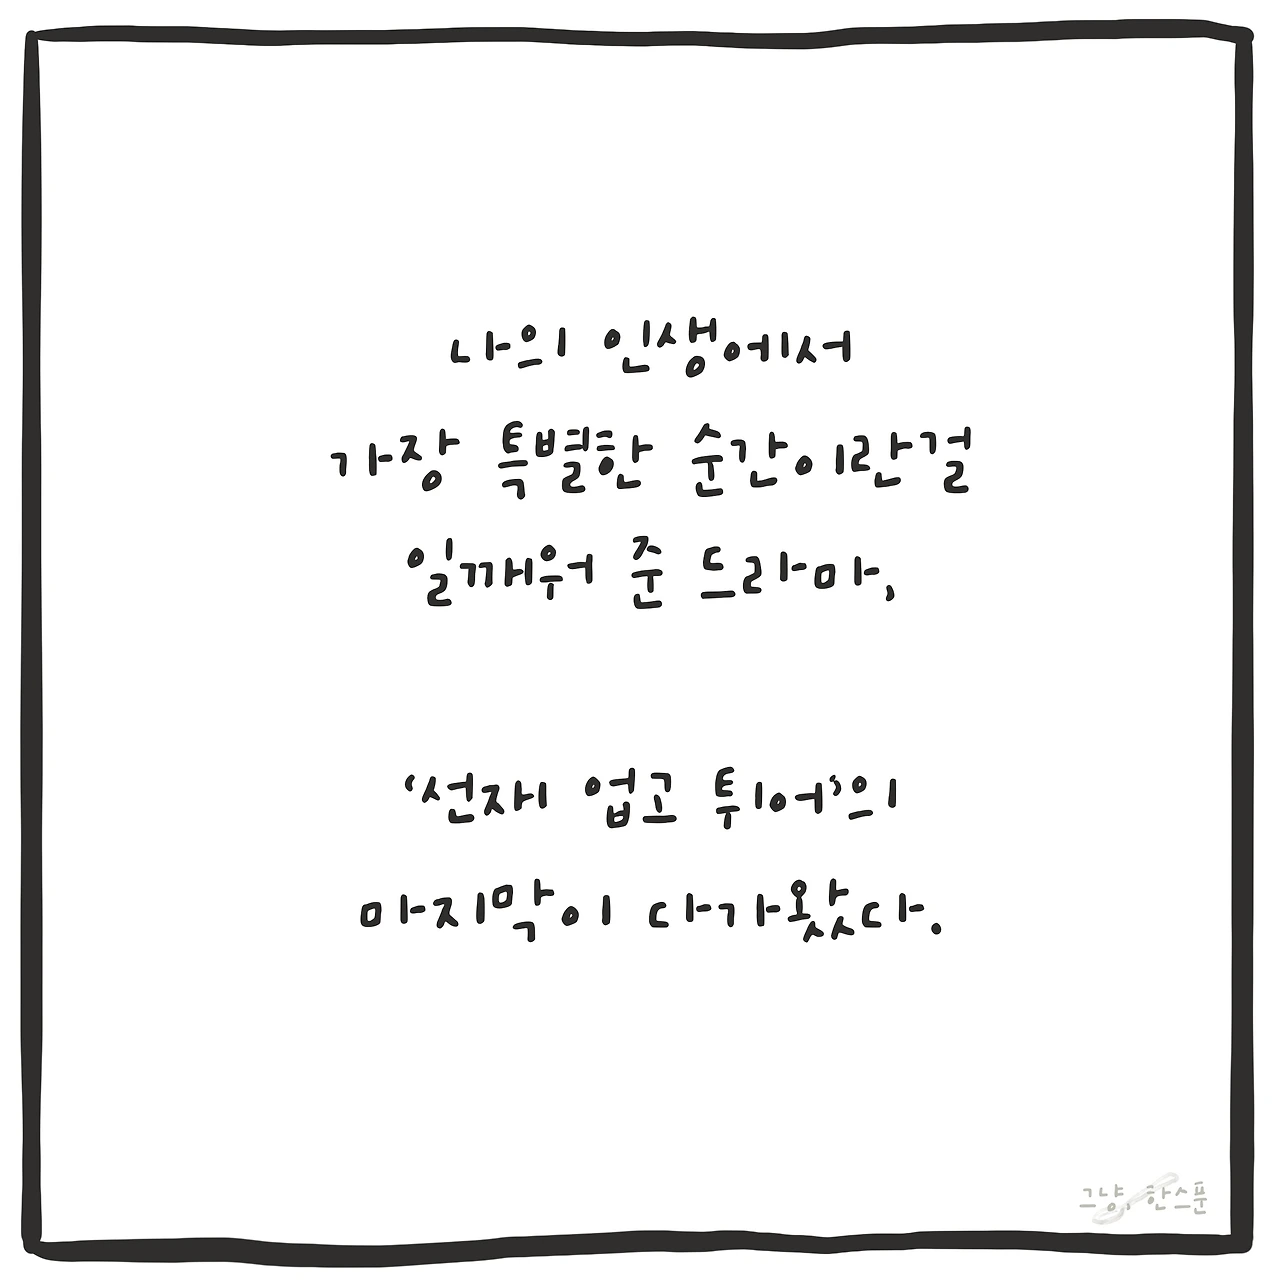 나의 인생에서
가장 특별한 순간이란걸
일깨워 준 드라마,
‘선재 업고 튀어’의
마지막이 다가왔다.
그냥, 한스푼